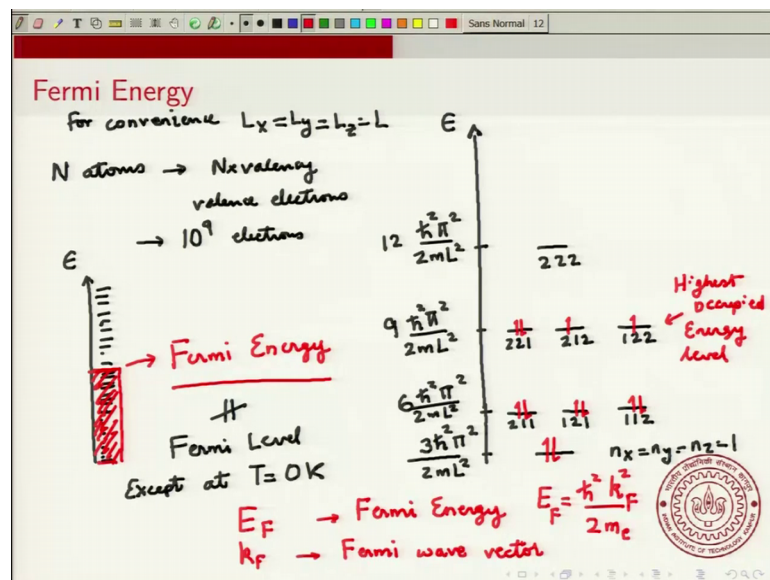 Sans Normal 12
Fermi Energy
For convenience Lx = Ly = Lz = L
N atoms → N×valency
valence electrons
→ 10⁹ electrons
ϵ
→ Fermi Energy
Fermi Level
Except at T = 0K
ϵ
12 ħ²π²/2mL²
222
9 ħ²π²/2mL²
221 212 122
Highest
Occupied
Energy
level
6 ħ²π²/2mL²
211 121 112
3ħ²π²/2mL²
nx = ny = nz = 1
E_F → Fermi Energy
E_F = ħ²k_F²/2m_e
k_F → Fermi wave vector
INDIAN INSTITUTE OF TECHNOLOGY KANPUR